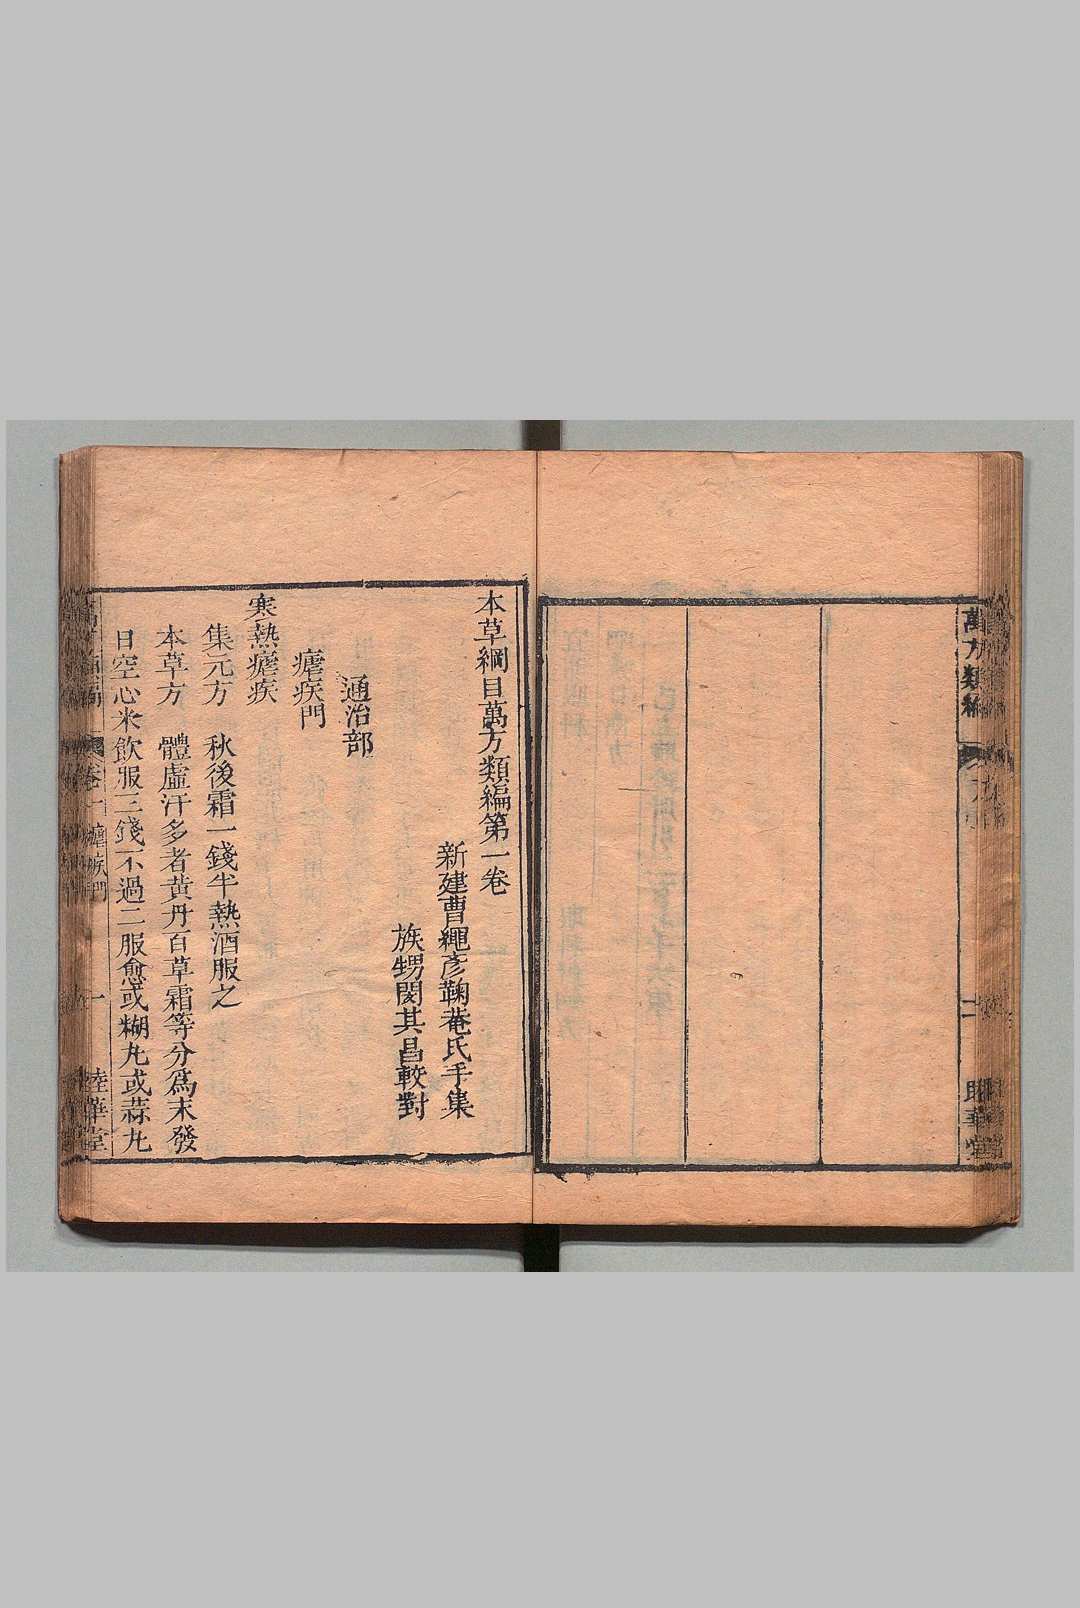 本草綱目萬方類編第一卷
新建曹繩彥鞠菴氏手集
族甥閔其昌較對
通治部
瘧疾門
寒熱瘧疾
集元方　秋後霜一錢半熱酒服之
本草方　體虛汗多者黃丹百草霜等分爲末發
日空心米飲服三錢不過二服愈或糊丸或蒜丸
卷一　瘧疾門　一
萬方類編　二